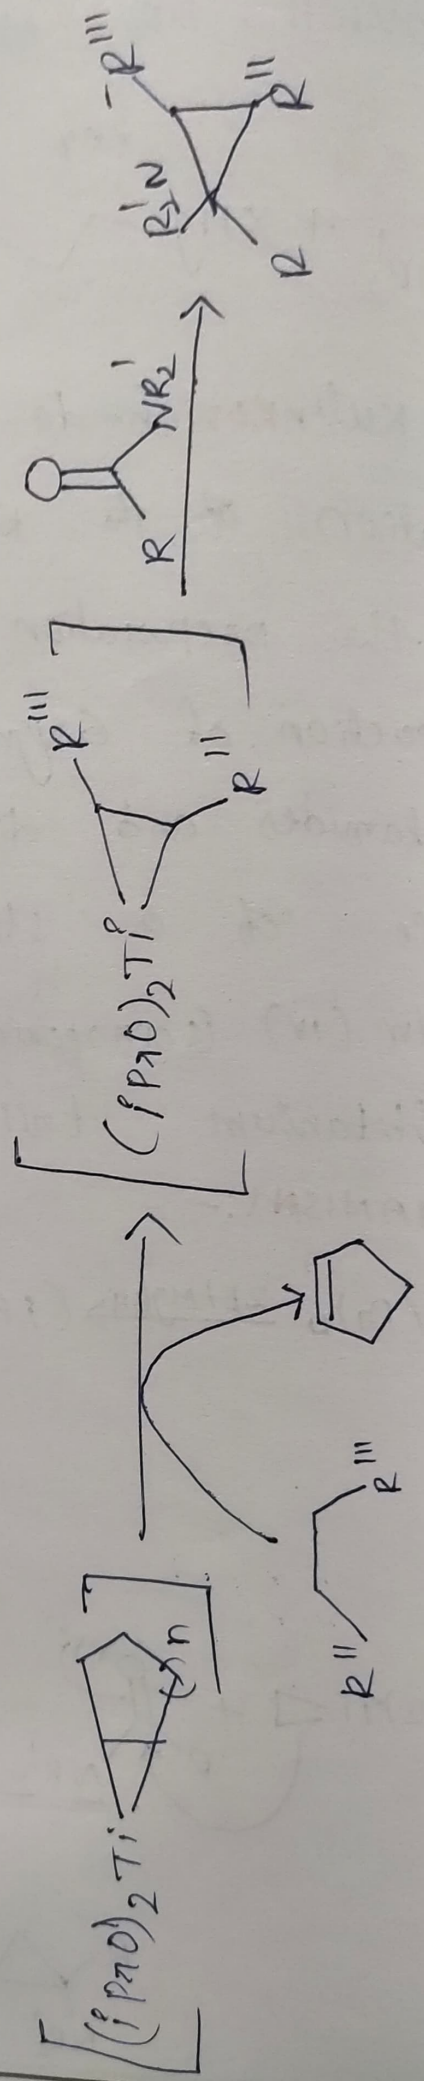 [(iPrO)₂Ti ( )n]
R'' R'''
[(iPrO)₂Ti R''' R'']
O
R NR₂'
R₂'N R R'' -R'''